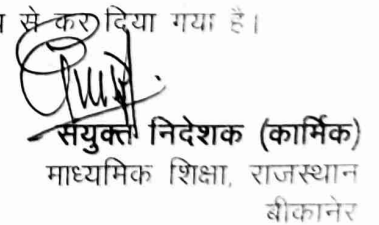 से कर दिया गया है।
संयुक्त निदेशक (कार्मिक)
माध्यमिक शिक्षा, राजस्थान
बीकानेर